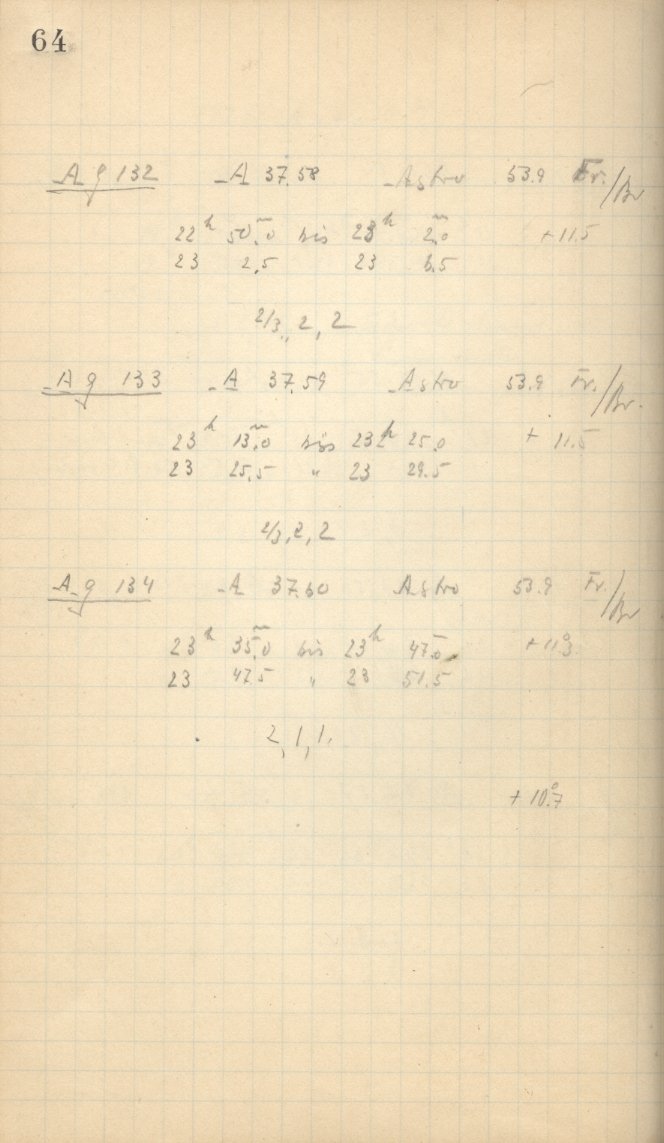 64
A g 132 A 37.58 Astro 53.9 Fr./Br
22h 50m.0 bis 23h 2m.0 +11.5
23 2,5 23 6.5
2/3, 2, 2
A g 133 A 37.59 Astro 53.9 Fr./Br.
23h 13m.0 bis 23h 25.0 + 11.5
23 25,5 " 23 29.5
2/3, 2, 2
A g 134 A 37.60 Astro 53.9 Fr./Br
23h 35m.0 bis 23h 47m.0 +11°.3
23 47.5 " 23 51.5
2, 1, 1.
+ 10°.7